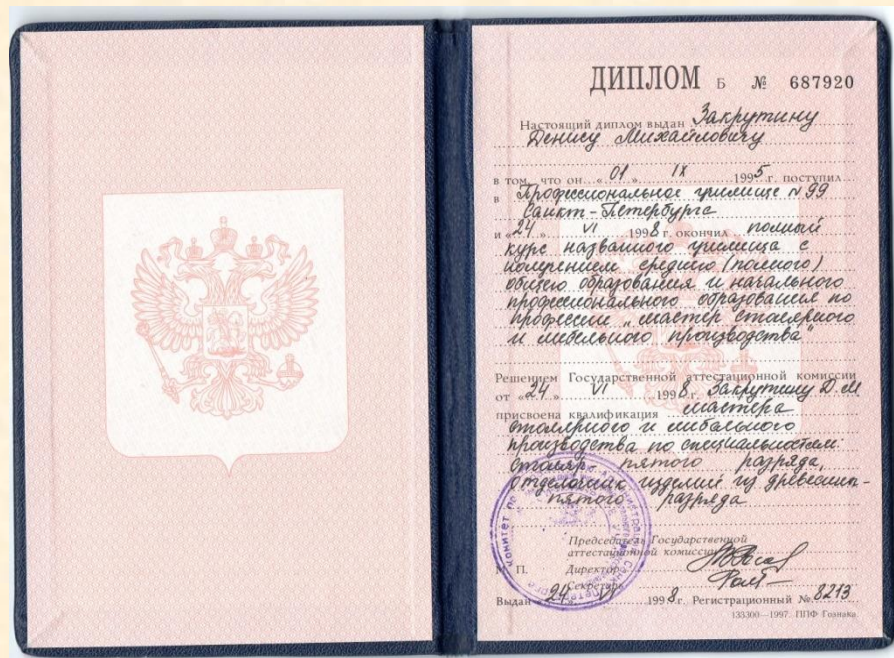 ДИПЛОМ Б № 687920
Настоящий диплом выдан Закрутину
Денису Михайловичу
в том, что он „ 01 „ IX 1995 г. поступил
в Профессиональное училище N 99
Санкт-Петербурга
и «24» VI 1998 г. окончил полный
курс названного училища с
получением среднего (полного)
общего образования и начального
профессионального образования по
профессии „мастер столярного
и мебельного производства"
Решением Государственной аттестационной комиссии
от «24» VI 1998 г. Закрутину Д.М
присвоена квалификация мастера
столярного и мебельного
производства по специальностям:
столяр- пятого разряда,
отделочник изделий из древесины-
пятого разряда
Председатель Государственной
аттестационной комиссии
М. П. Директор
Секретарь
Выдан «24» VI 1998 г. Регистрационный № 8213
133300—1997. ППФ Гознака.